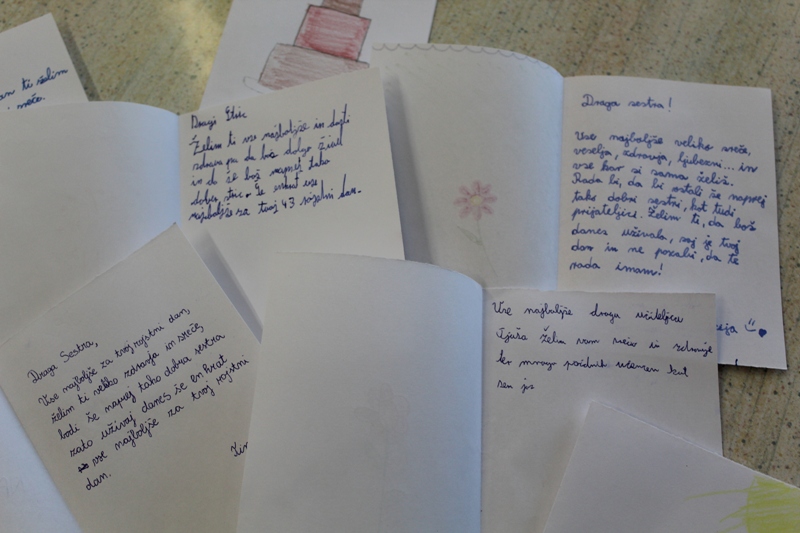 ti želim
sreče.
Dragi Stric
Želim ti vse najboljše in dosti
zdravja pa da boš dolgo živel
in da še boš naprej tako
dober stric. Še enkrat vse
najboljše za tvoj 43 rojstni dan.
Draga sestra!
Vse najboljše veliko sreče,
veselja, zdravja, ljubezni... in
vse kar si sama želiš.
Rada bi, da bi ostali še naprej
tako dobri sestri, kot tudi
prijateljici. Želim ti, da boš
danes uživala, saj je tvoj
dan in ne pozabi, da te
rada imam!
Draga Sestra,
Vse najboljše za tvoj rojstni dan,
želim ti veliko zdravja in sreče,
bodi še naprej tako dobra sestra
zato uživaj danes še en krat
vse najboljše za tvoj rojstni
dan.
Vse najboljše draga učiteljica
Tjuša želim vam sreče in zdravje
ter mnogo pridnih učencev kot
sem jz